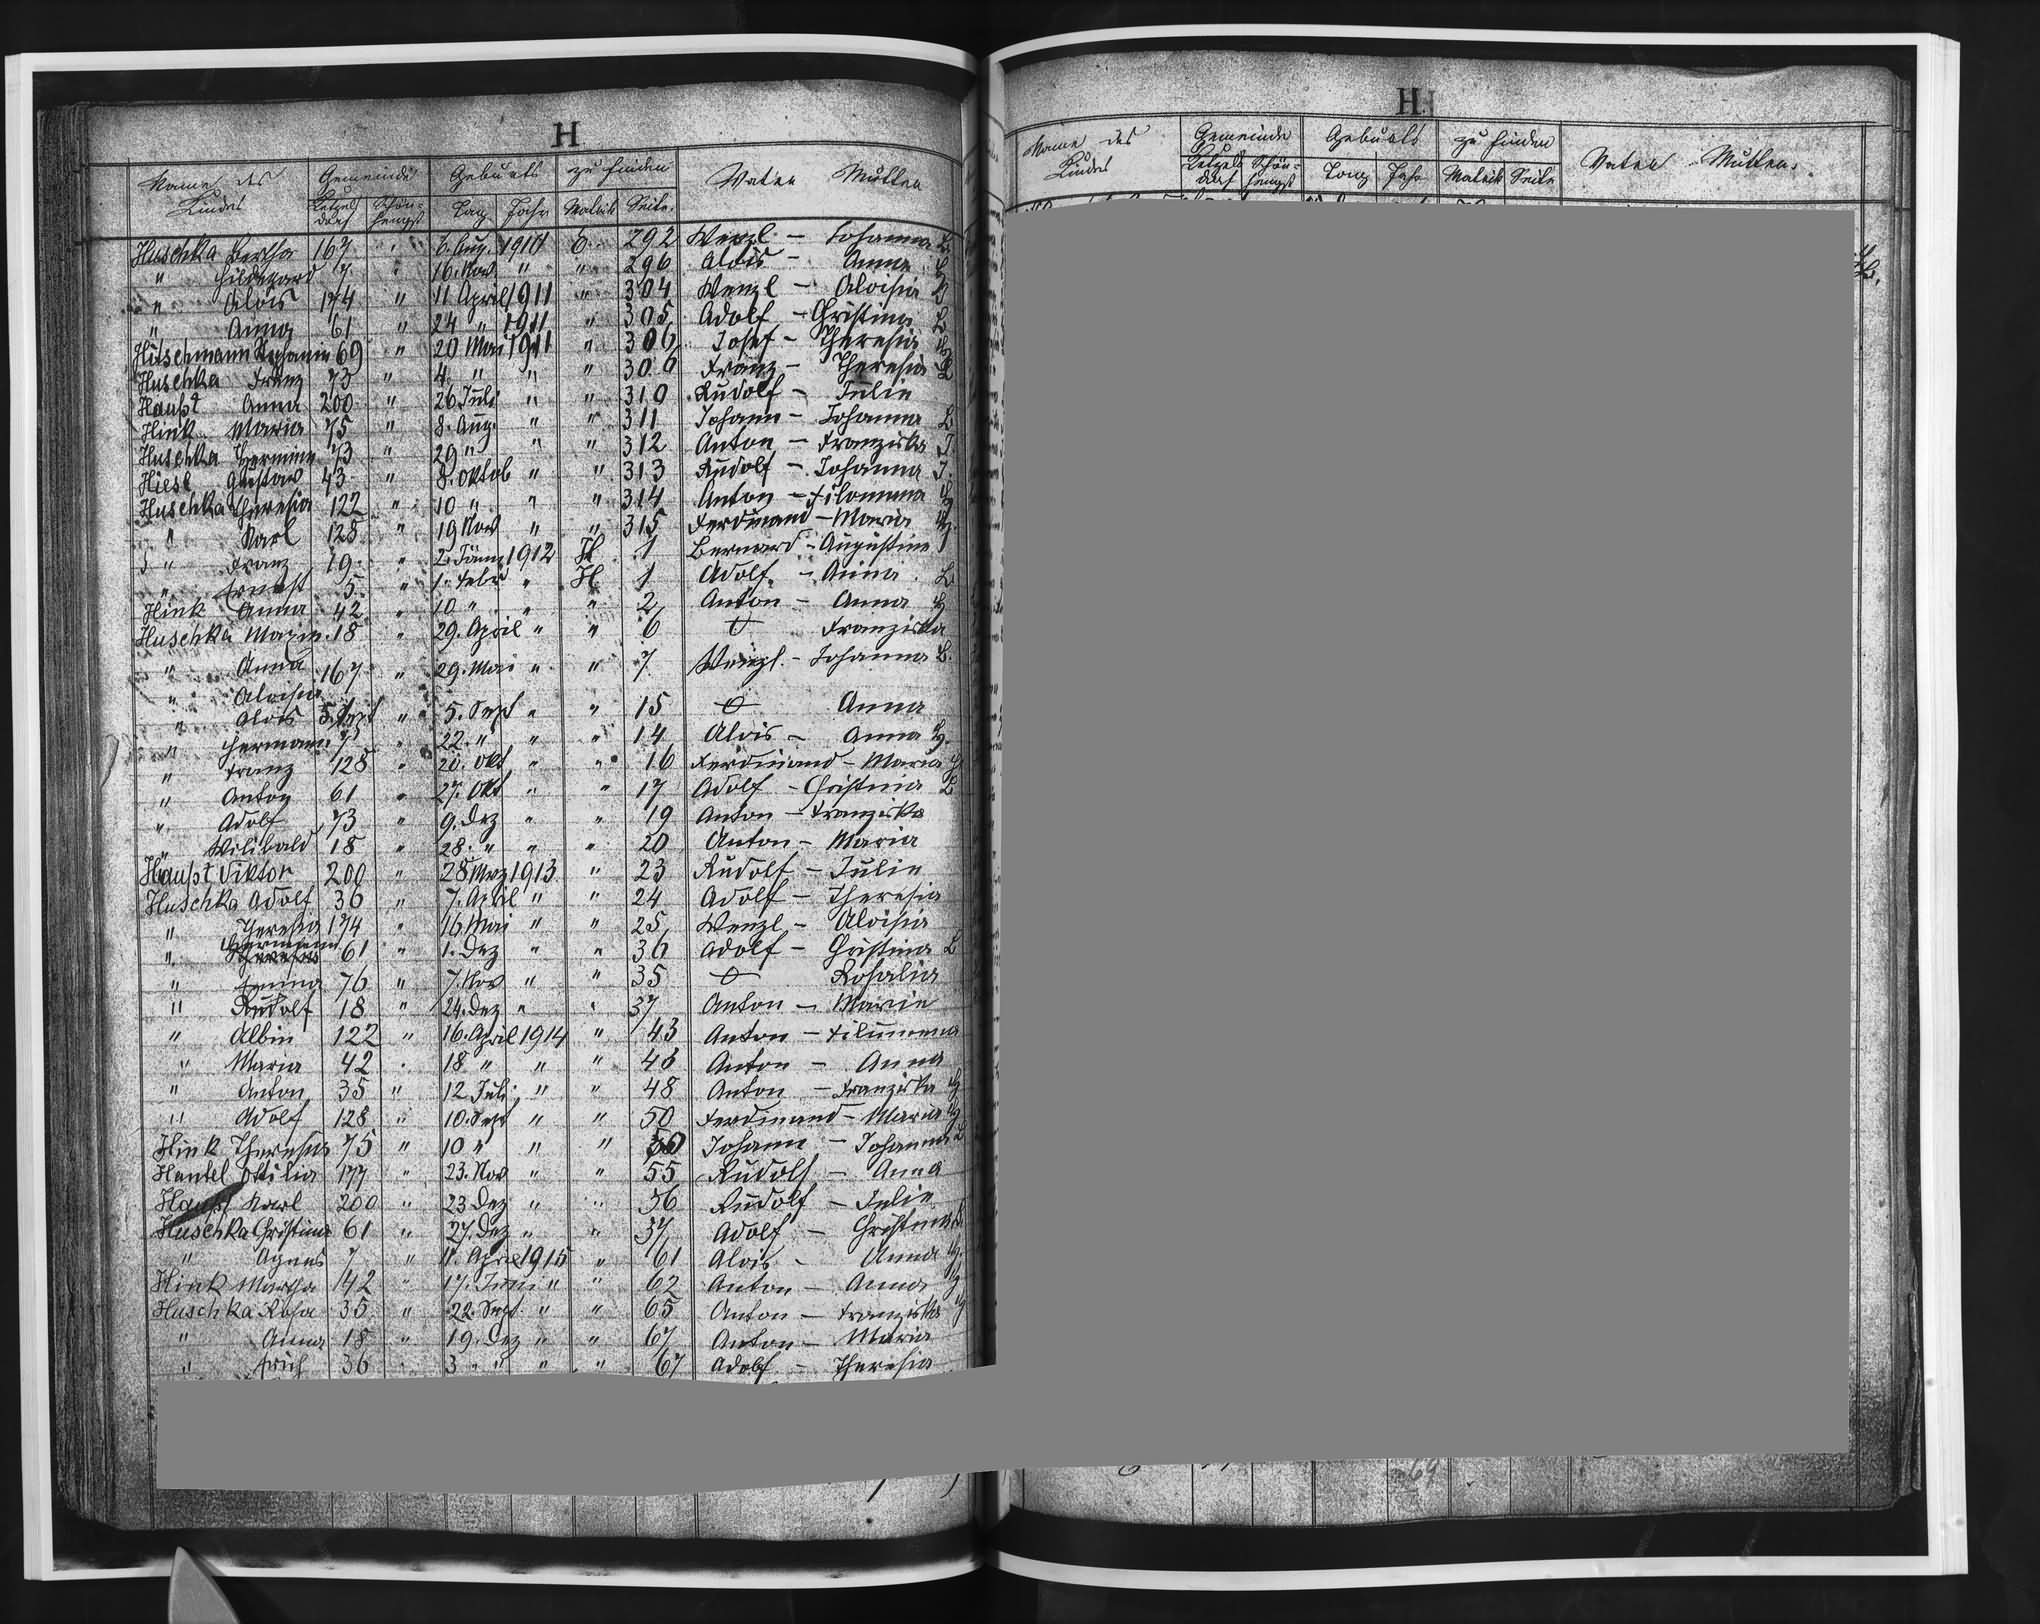 H
Name des Kindes Gemeinde Geburts zu finden Vater Mutter
Ketzelsdorf Schönhengst Tag Jahr Matrik Seite
Huschka Bertha 167 " 6. Aug. 1910 6 292 Wenzl – Johanna
" Hildegard 7 " 16. Nov. " " 296 Alois – Anna
" Alois 174 " 11 April 1911 " 304 Wenzl – Aloisia
" Anna 61 " 24 " 1911 " 305 Adolf – Christina
Hütschmann Johann 69 " 20 Mai 1911 " 306 Josef – Theresia
Huschka Franz 73 " 4. " " " 306 Franz – Theresia
Haupt Anna 200 " 26 Juli " " 310 Rudolf – Julie
Hink Maria 75 " 8. Aug. " " 311 Johann – Johanna
Huschka Hermine 73 " 29 " " " 312 Anton – Franziska
Hiesl Gustav 43 " 8. Oktob " " 313 Rudolf – Johanna
Huschka Theresia 122 " 10 " " " 314 Anton – Filomena
" Karl 128 " 19 Nov " " 315 Ferdinand – Maria
" Franz 19 " 2. Jänn 1912 H 1 Bernard – Augustine
" Ernest 5 " 1. Febr " H 1 Adolf – Anna
Hink Anna 42 " 10 " " " 2 Anton – Anna
Huschka Marie 18 " 29. April " " 6 Franziska
" Anna 167 " 29. Mai " " 7 Wenzl – Johanna
" Aloisia
" Alois " 5. Sept " " 15 Anna
" Hermann 7 " 22. " " " 14 Alois – Anna
" Franz 128 " 20. Okt " " 16 Ferdinand – Maria
" Anton 61 " 27. Okt " " 17 Adolf – Christina
" Adolf 73 " 9. Dez " " 19 Anton – Franziska
" Wilibald 18 " 28. " " " 20 Anton – Maria
Haupt Viktor 200 " 28 Mrz 1913 " 23 Rudolf – Julie
Huschka Adolf 36 " 7. April " " 24 Adolf – Theresia
" Theresia 174 " 16. Mai " " 25 Wenzl – Aloisia
" Hermann 61 " 1. Dez " " 36 Adolf – Christina
" Emma 76 " 7. Nov " " 35 Rosalia
" Rudolf 18 " 24. Dez " " 37 Anton – Marie
" Albin 122 " 16. April 1914 " 43 Anton – Filumena
" Maria 42 " 18 " " " 43 Anton – Anna
" Anton 35 " 12 Juli " " 48 Anton – Franziska
" Adolf 128 " 10. Sept " " 50 Ferdinand – Maria
Hink Theresia 75 " 10 " " " 50 Johann – Johanna
Hantel Ottilia 177 " 23. Nov " " 55 Rudolf – Anna
Haupt Karl 200 " 23 Dez " " 56 Rudolf – Julie
Huschka Christina 61 " 27. Dez " " 57 Adolf – Christina
" Agnes 7 " 11. April 1915 " 61 Alois – Anna
Hink Martha 42 " 17. Juni " " 62 Anton – Anna
Huschka Rosa 35 " 22. Sept. " " 65 Anton – Franziska
" Anna 18 " 19. Dez " " 67 Anton – Maria
" Erich 36 " 3 " " " 67 Adolf – Theresia
H
Name des Kindes Gemeinde Geburts zu finden Vater Mutter
Ketzelsdorf Schönhengst Tag Jahr Matrik Seite